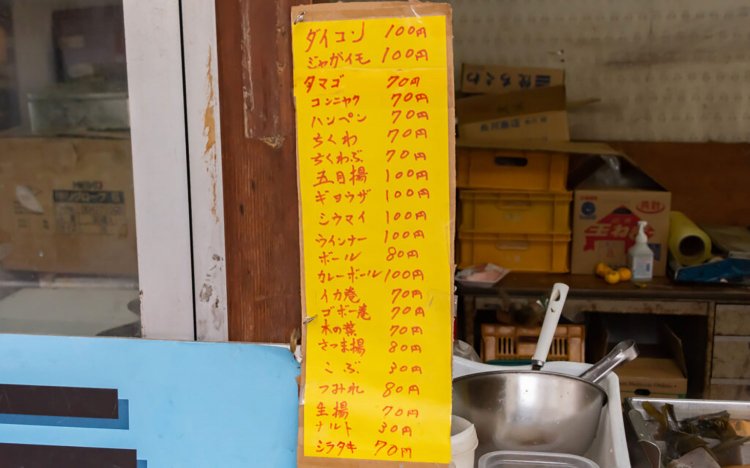 ダイコン 100円
ジャガイモ 100円
タマゴ 70円
コンニャク 70円
ハンペン 70円
ちくわ 70円
ちくわぶ 70円
五目揚 100円
ギョウザ 100円
シウマイ 100円
ウインナー 100円
ボール 80円
カレーボール 100円
イカ巻 70円
ゴボー巻 70円
木の葉 70円
さつま揚 80円
こぶ 30円
つみれ 80円
生揚 70円
ナルト 30円
シラタキ 70円